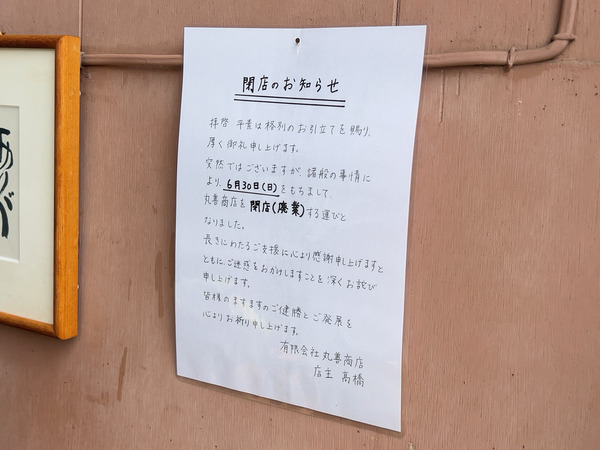 閉店のお知らせ
拝啓 平素は格別のお引立てを賜り、
厚く御礼申し上げます。
突然ではございますが、諸般の事情に
より、6月30日(日)をもちまして、
丸善商店を閉店(廃業)する運びと
なりました。
長きにわたるご支援に心より感謝申し上げますと
ともに、ご迷惑をおかけしますことを深くお詫び
申し上げます。
皆様のますますのご健勝とご発展を
心よりお祈り申し上げます。
有限会社丸善商店
店主 高橋